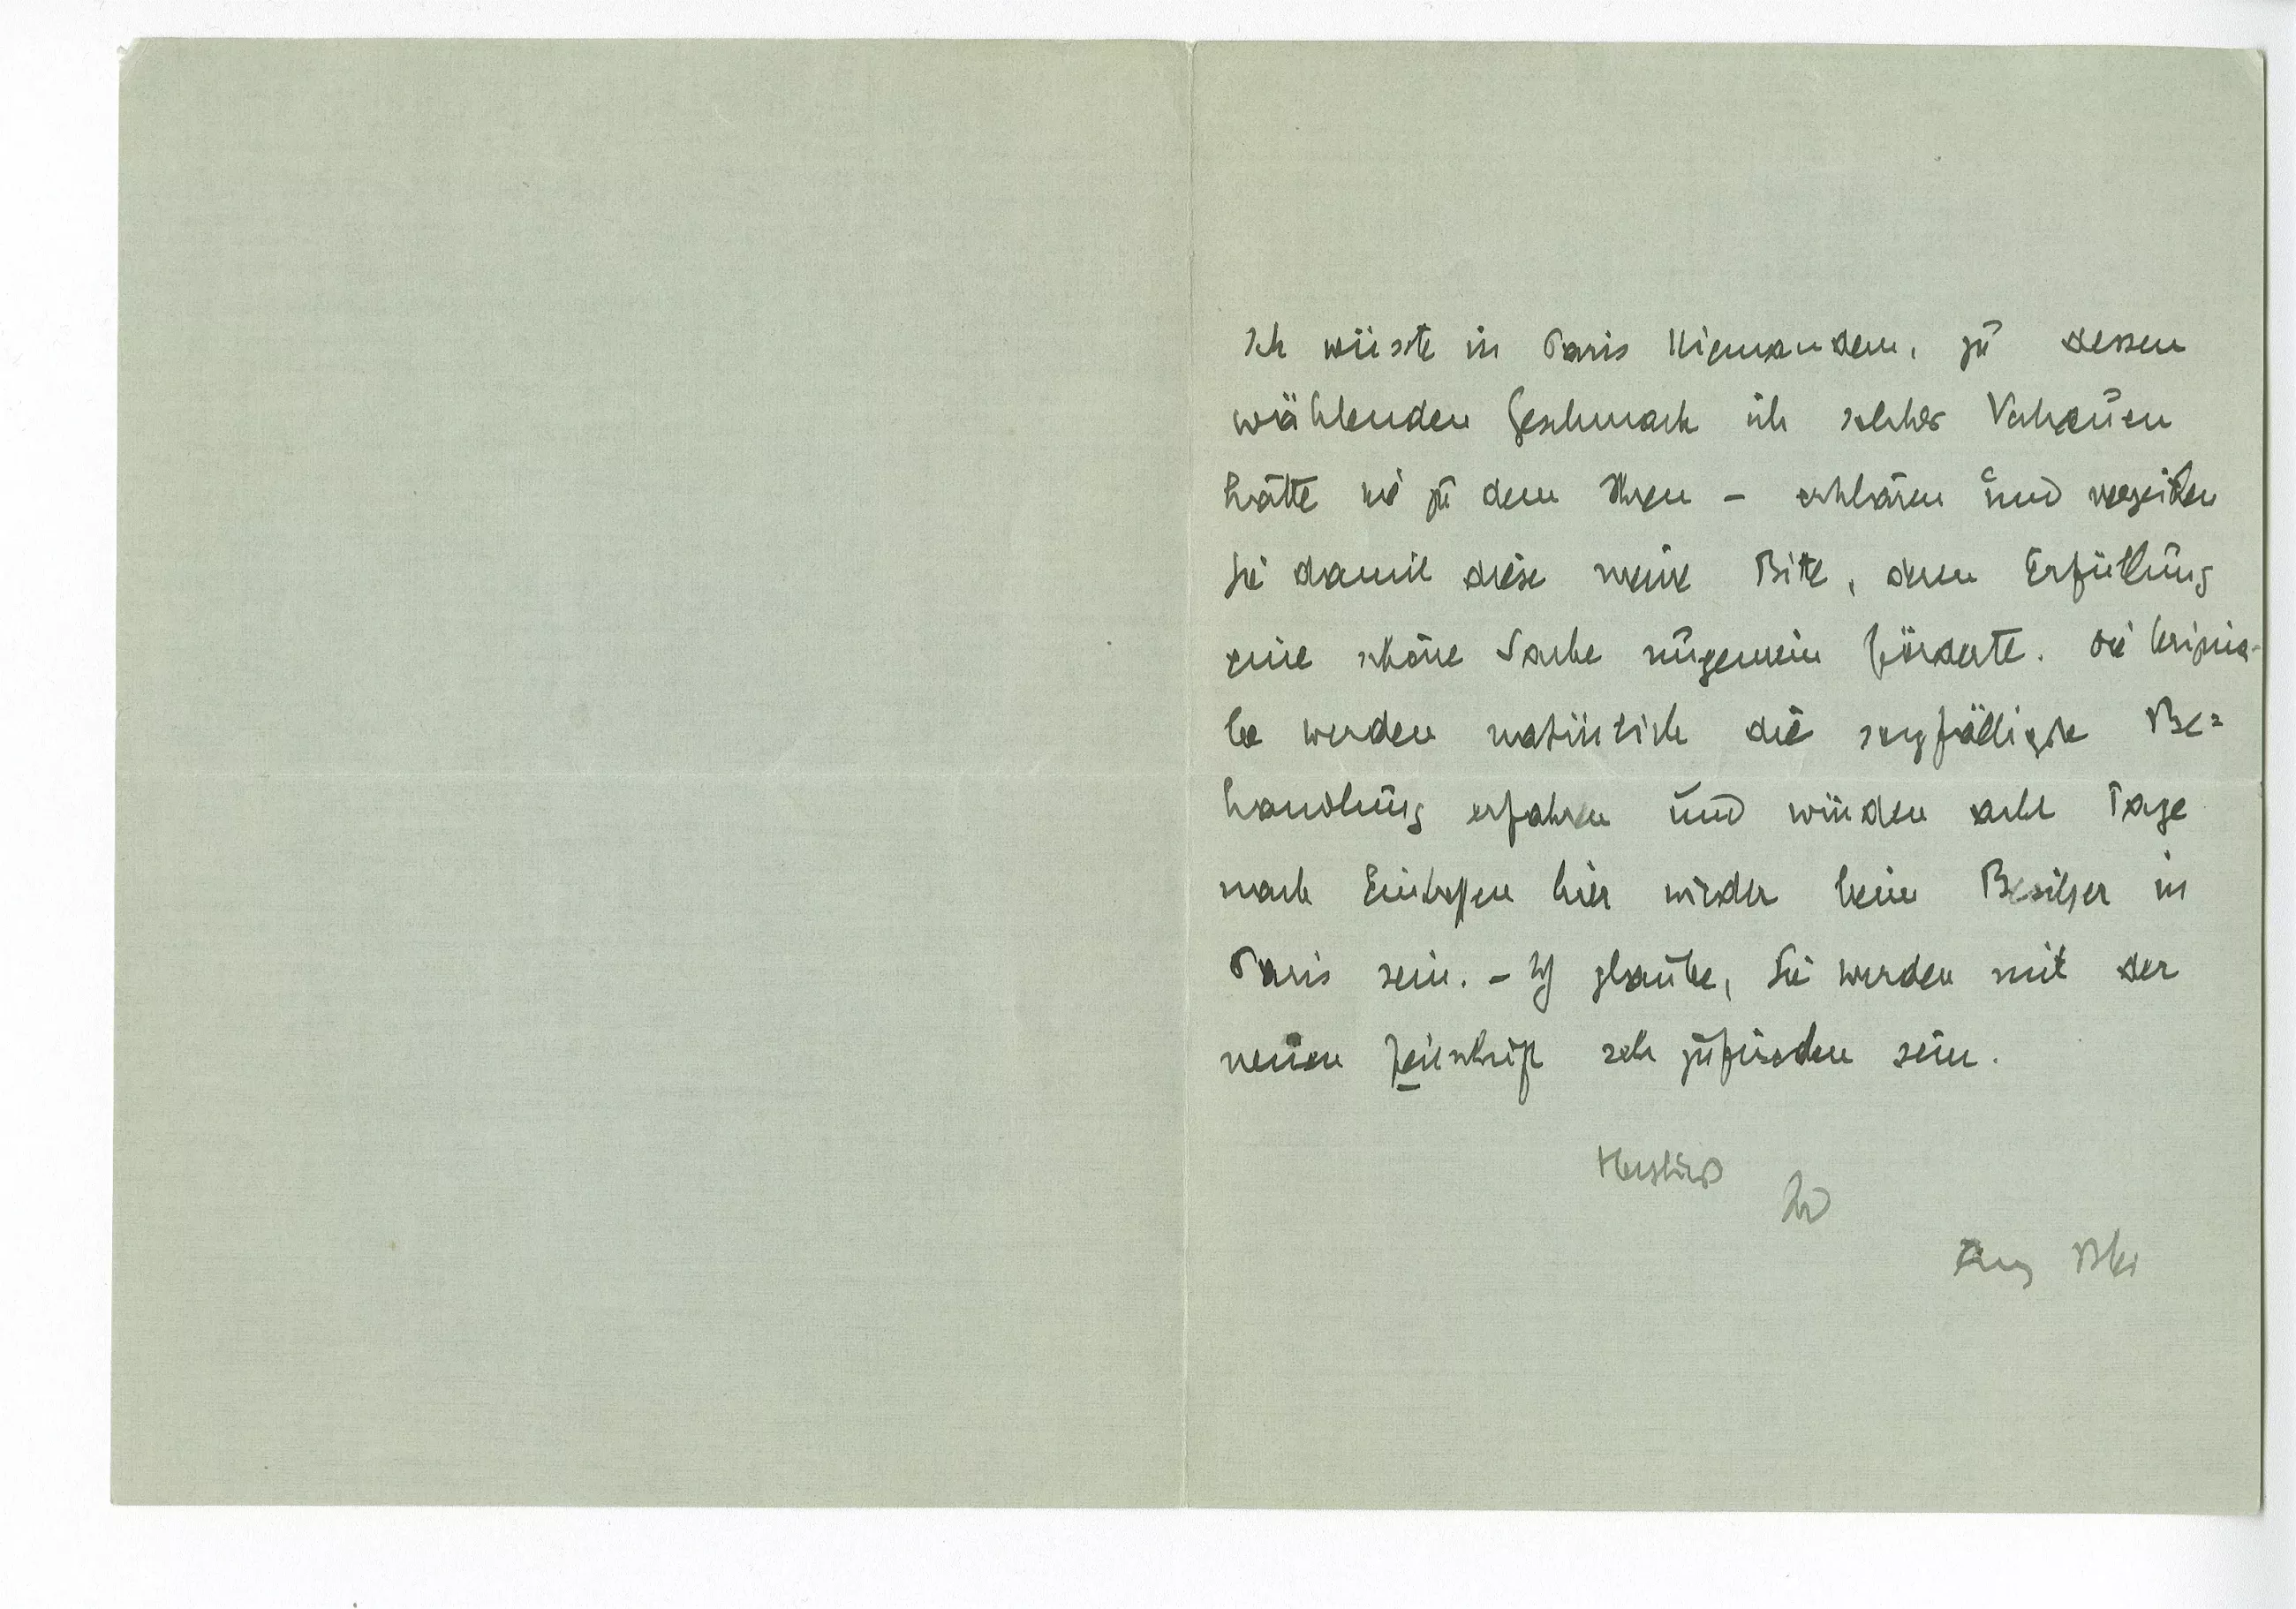 Ich wüsste in Paris Niemandem, zu dessen
wählenden Geschmack ich solches Vertrauen
hätte wie zu dem Ihren – erklären und verzeihen
Sie damit diese meine Bitte, deren Erfüllung
eine schöne Sache ungemein förderte. Die Origina-
le werden natürlich die sorgfältigste Be=
handlung erfahren und würden acht Tage
nach Eintreffen hier wieder beim Besitzer in
Paris sein. – Ich glaube, Sie werden mit der
neuen Zeitschrift sehr zufrieden sein.
Herzlichst
Ihr
Franz Blei